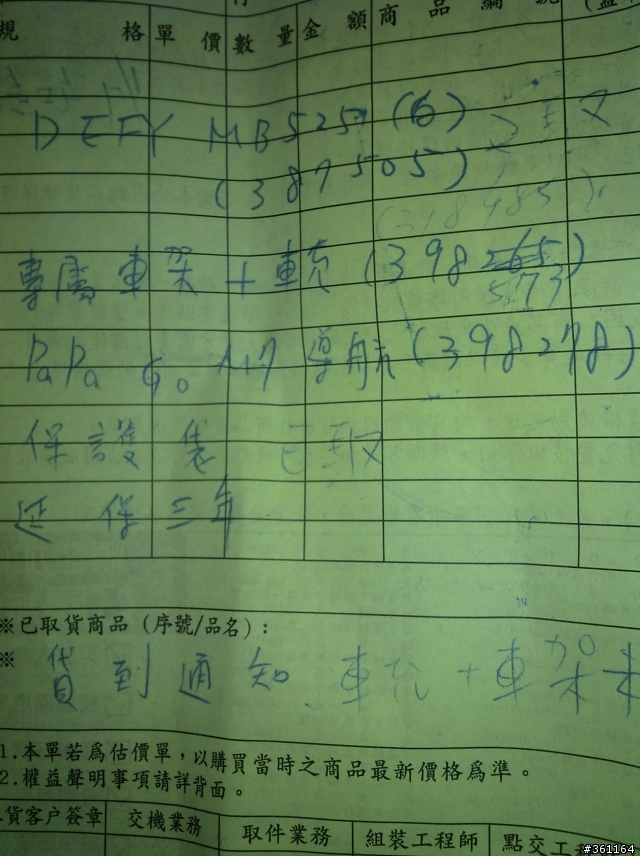 規 格 單 價 數 量 金 額 商 品 編 號
DEFY MB525 (白)
(387505)
(398985)
專屬車架 + 車充 (398573)
PaPaGo M7 導航 (398278)
保護袋 已取
延保三年
※已取貨商品 (序號/品名):
※ 貨到通知、車充 + 車架未
1.本單若為估價單,以購買當時之商品最新價格為準。
2.權益聲明事項請詳背面。
貨客戶簽章 交機業務 取件業務 組裝工程師 點交工
#361164